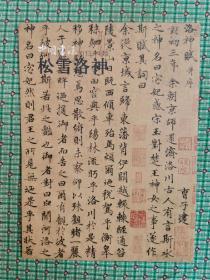 松雪洛神
洛神賦 并序
曹子建
黄初三年余朝京師還濟洛川古人有言斯水
之神名曰宓妃感宋玉對楚王神女之事遂作
斯賦其詞曰
余從京城言歸東藩背伊闕越轘轅經通谷
陵景山日既西傾車殆馬煩爾迺稅駕乎蘅皋
秣駟乎芝田容與乎楊林流眄乎洛川於是精
移神駭忽焉思散俯則未察仰以殊觀睹一麗
人于巖之畔迺援御者而告之曰爾有覿於彼者
乎彼何人斯若此之豔也御者對曰臣聞河洛之
神名曰宓妃然則君王之所見無迺是乎其狀若